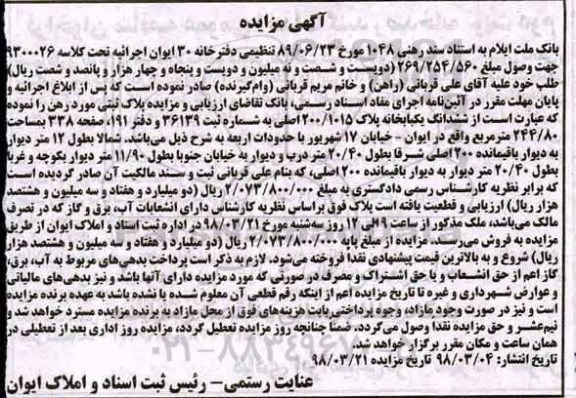 آگهی مزایده
بانک ملت ایلام به استناد سند رهنی ۱۰۴۸ مورخ ۸۹/۰۶/۲۳ تنظیمی دفترخانه ۳۰ ایوان اجرائیه تحت کلاسه ۹۳۰۰۰۲۶
جهت وصول مبلغ ۲۶۹/۲۵۴/۵۶۰ (دویست و شصت و نه میلیون و دویست و پنجاه و چهار هزار و پانصد و شصت ریال)
طلب خود علیه آقای علی قربانی (راهن) و خانم مریم قربانی (وام‌گیرنده) صادر نموده است که پس از ابلاغ اجرائیه و
پایان مهلت مقرر در آئین‌نامه اجرای مفاد اسناد رسمی، بانک تقاضای ارزیابی و مزایده پلاک ثبتی مورد رهن را نموده
که عبارت است از ششدانگ یکبابخانه پلاک ۲۰۰/۱۰۱۵ اصلی به شماره ثبت ۳۶۱۳۹ و دفتر ۱۹۱، صفحه ۳۳۸ بمساحت
۲۴۴/۸۰ مترمربع واقع در ایوان - خیابان ۱۷ شهریور با حدودات اربعه به شرح ذیل می‌باشد. شمالا بطول ۱۲ متر دیوار
به دیوار باقیمانده ۲۰۰ اصلی شرقا بطول ۲۰/۴۰ متر درب و دیوار به خیابان جنوبا بطول ۱۱/۹۰ متر دیوار بکوچه و غربا
بطول ۲۰/۴۰ متر دیوار به دیوار باقیمانده ۲۰۰ اصلی، که بنام علی قربانی ثبت و سند مالکیت آن صادر گردیده است
که برابر نظریه کارشناس رسمی دادگستری به مبلغ ۲/۰۷۳/۸۰۰/۰۰۰ ریال (دو میلیارد و هفتاد و سه میلیون و هشتصد
هزار ریال) ارزیابی و قطعیت یافته است پلاک فوق براساس نظریه کارشناس دارای انشعابات آب، برق و گاز که در تصرف
مالک می‌باشد، ملک مذکور از ساعت ۹ الی ۱۲ روز سه‌شنبه مورخ ۹۸/۰۳/۲۱ در اداره ثبت اسناد و املاک ایوان از طریق
مزایده به فروش می‌رسد. مزایده از مبلغ پایه ۲/۰۷۳/۸۰۰/۰۰۰ ریال (دو میلیارد و هفتاد و سه میلیون و هشتصد هزار
ریال) شروع و به بالاترین قیمت پیشنهادی نقدا فروخته می‌شود. لازم به ذکر است پرداخت بدهی‌های مربوط به آب، برق،
گاز اعم از حق انشعاب و یا حق اشتراک و مصرف در صورتی که مورد مزایده دارای آنها باشد و نیز بدهی‌های مالیاتی
و عوارض شهرداری و غیره تا تاریخ مزایده اعم از اینکه رقم قطعی آن معلوم شده یا نشده باشد به عهده برنده مزایده
است و نیز در صورت وجود مازاد، وجوه پرداختی بابت هزینه‌های فوق از محل مازاد به برنده مزایده مسترد خواهد شد و
نیم‌عشر و حق مزایده نقدا وصول می‌گردد. ضمنا چنانچه روز مزایده تعطیل گردد، مزایده روز اداری بعد از تعطیلی در
همان ساعت و مکان مقرر برگزار خواهد شد.
تاریخ انتشار: ۹۸/۰۳/۰۴ تاریخ مزایده ۹۸/۰۳/۲۱
عنایت رستمی- رئیس ثبت اسناد و املاک ایوان